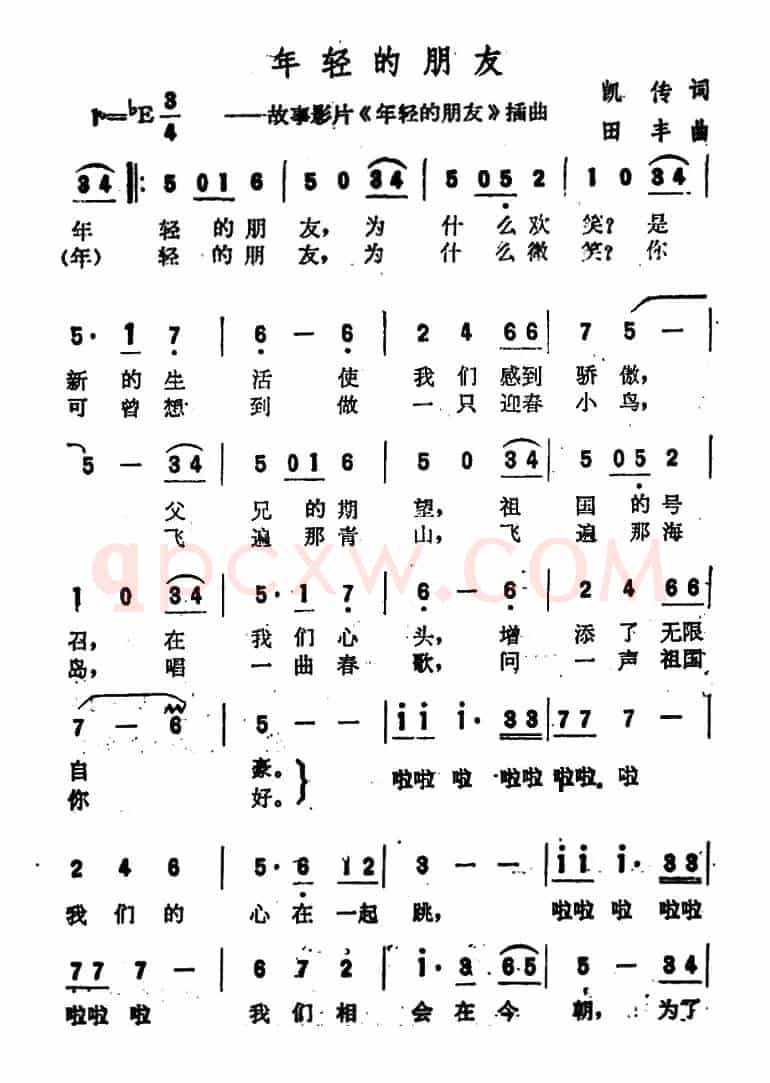 年轻的朋友
1=♭E 3/4
——故事影片《年轻的朋友》插曲
凯传词
田丰曲
34 ‖: 5 01 6 | 5 0 34 | 5 05 2 | 1 0 34 |
年 轻 的朋 友, 为 什 么欢 笑? 是
(年) 轻 的朋 友, 为 什 么微 笑? 你
5· 1 7 | 6 — 6 | 2 4 66 | 7 5 — |
新 的 生 活 使 我 们 感到 骄 傲,
可 曾 想 到 做 一 只 迎春 小 鸟,
5 — 34 | 5 01 6 | 5 0 34 | 5 05 2 |
父 兄 的期 望, 祖 国 的号
飞 遍 那青 山, 飞 遍 那海
1 0 34 | 5· 1 7 | 6 — 6 | 2 4 66 |
召, 在 我 们 心 头, 增 添 了 无限
岛, 唱 一 曲 春 歌, 问 一 声 祖国
7 — 6 | 5 — — | i i i· 33 | 77 7 — |
自 豪。 啦啦 啦 啦啦 啦啦 啦
你 好。
2 4 6 | 5· 6 12 | 3 — — | i i i· 33 |
我 们 的 心 在 一起 跳, 啦啦 啦 啦啦
77 7 — | 6 7 2 | i· 3 65 | 5 — 34 |
啦啦 啦 我 们 相 会 在 今 朝, 为了
qpcxw.COM